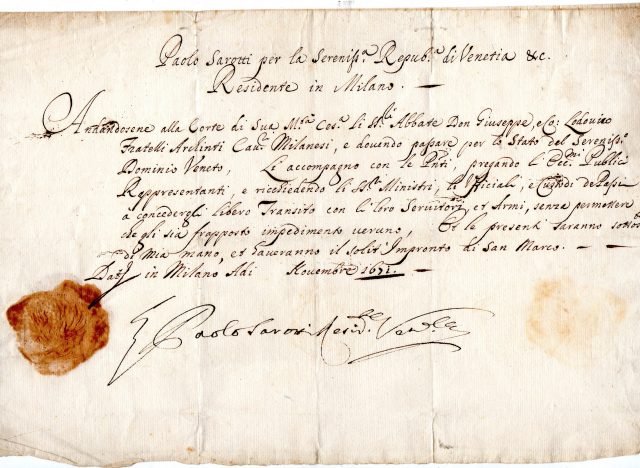 Paolo Sarotti per la Sereniss.ᵃ Repub.ᵃ di Venetia &c.
Residente in Milano. —
Andandosene alla Corte di Sua M.ᵗᵃ Ces.ᵃ li SS.ʳⁱ Abbate Don Giuseppe, e Lodovico
Fratelli Arconti Cau.ʳⁱ Milanesi, e dovendo passare per lo Stato del Sereniss.º
Dominio Veneto, Li accompagno con le Pnti, pregando l'Ecc.ᵐⁱ Publici
Rappresentanti, e ricchiedendo li SS.ʳⁱ Ministri, le Ufficiali, e Custodi de Passi
a concedergli libero Transito con li loro Servitori, et Armi, senza permettere
che gli sia frapposto impedimento veruno, Et le presenti saranno sottos
di mia mano, et haveranno il solito Impronto di San Marco. —
Dat. in Milano Adi Novembre 1671. —
Paolo Sarotti Resid.ᵗᵉ Ven.